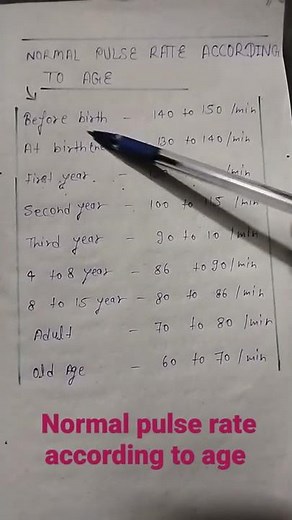 NORMAL PULSE RATE ACCORDING
TO AGE
Before birth - 140 to 150/min
At birth 130 to 140/min
First year. - /min
Second year - 100 to 115/min
Third year - 90 to 10/min
4 to 8 year - 86 to 90/min
8 to 15 year - 80 to 86/min
Adult - 70 to 80/min
Old Age - 60 to 70/min
Normal pulse rate
according to age